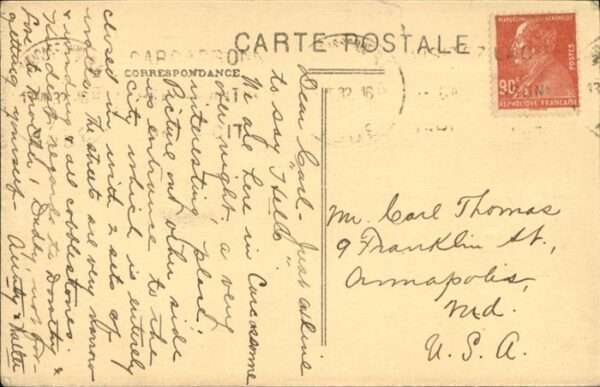 CARTE POSTALE
CORRESPONDANCE
Dear Carl - Just a line
to say "Hello".
We are here in Carcasonne
over night, a very
interesting place.
Picture on other side
is entrance to the
city which is entirely
closed in with 2 sets of
walls. The streets are very narrow
& winding & all cobblestones.
Kindest regards to Dorothy &
for to Mother, Daddy, not for-
getting yourself. Aunty & Walter
Mr. Carl Thomas
9 Franklin St.,
Annapolis,
Md.
U. S. A.
90c
POSTES
REPUBLIQUE FRANÇAISE